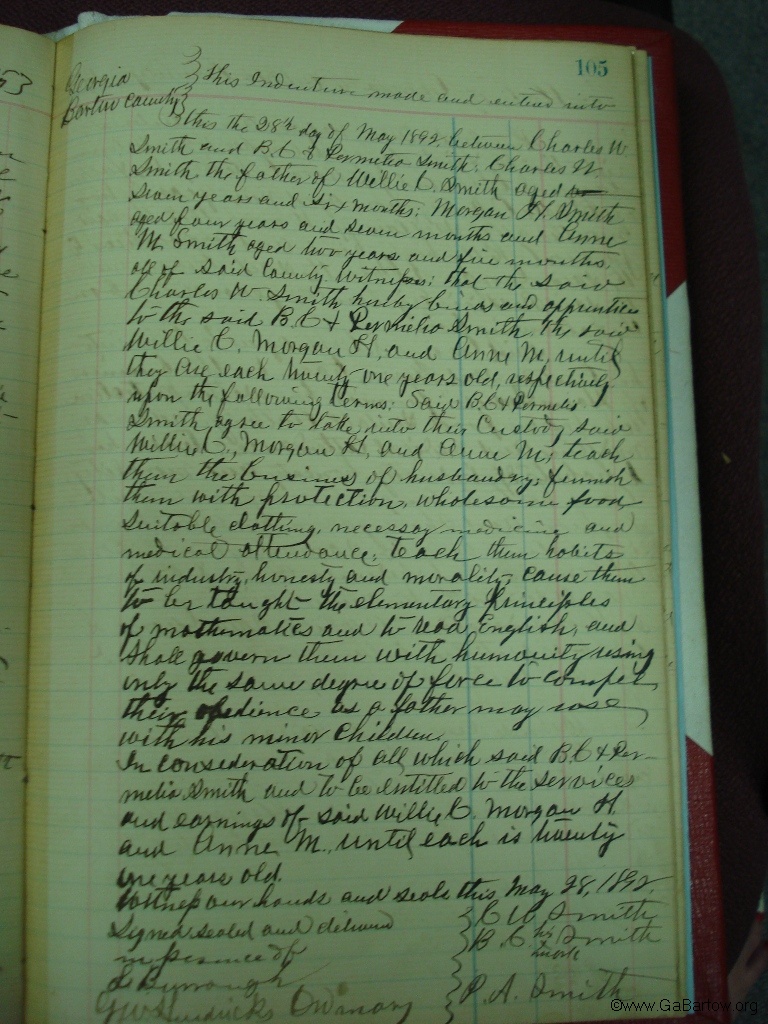 105
Georgia
Bartow County
This Indenture made and entered into
this the 28th day of May 1892, between Charles W
Smith and B. C & Permelia Smith. Charles W.
Smith the father of Willie C. Smith aged
seven years and six months; Morgan H. Smith
aged four years and seven months and Anne
M. Smith aged two years and five months,
all of said County Witness: that the said
Charles W. Smith hereby binds and apprentices
to the said B. C & Permelia Smith, the said
Willie C. Morgan H. and Anne M. until
they are each twenty one years old, respectively
upon the following terms: Said B. C & Permelia
Smith agree to take into their Custody said
Willie C., Morgan H. and Anne M; teach
them the business of husbandry; furnish
them with protection, wholesome food
suitable clothing, necessary medicine and
medical attendance; teach them habits
of industry, honesty and morality; cause them
to be taught the elementary principles
of mathematics and to read English, and
shall govern them with humanity using
only the same degree of force to compel
their obedience as a father may use
with his minor children.
In consideration of all which said B. C & Per-
melia Smith and to be entitled to the services
and earnings of said Willie C. Morgan H.
and Anne M., until each is twenty
one years old.
Witness our hands and seals this, May 28, 1892.
Signed sealed and delivered
in presence of
Burrough
Hendricks Ordinary
C W Smith
B. C his Smith
mark
P. A. Smith
©www.GaBartow.org